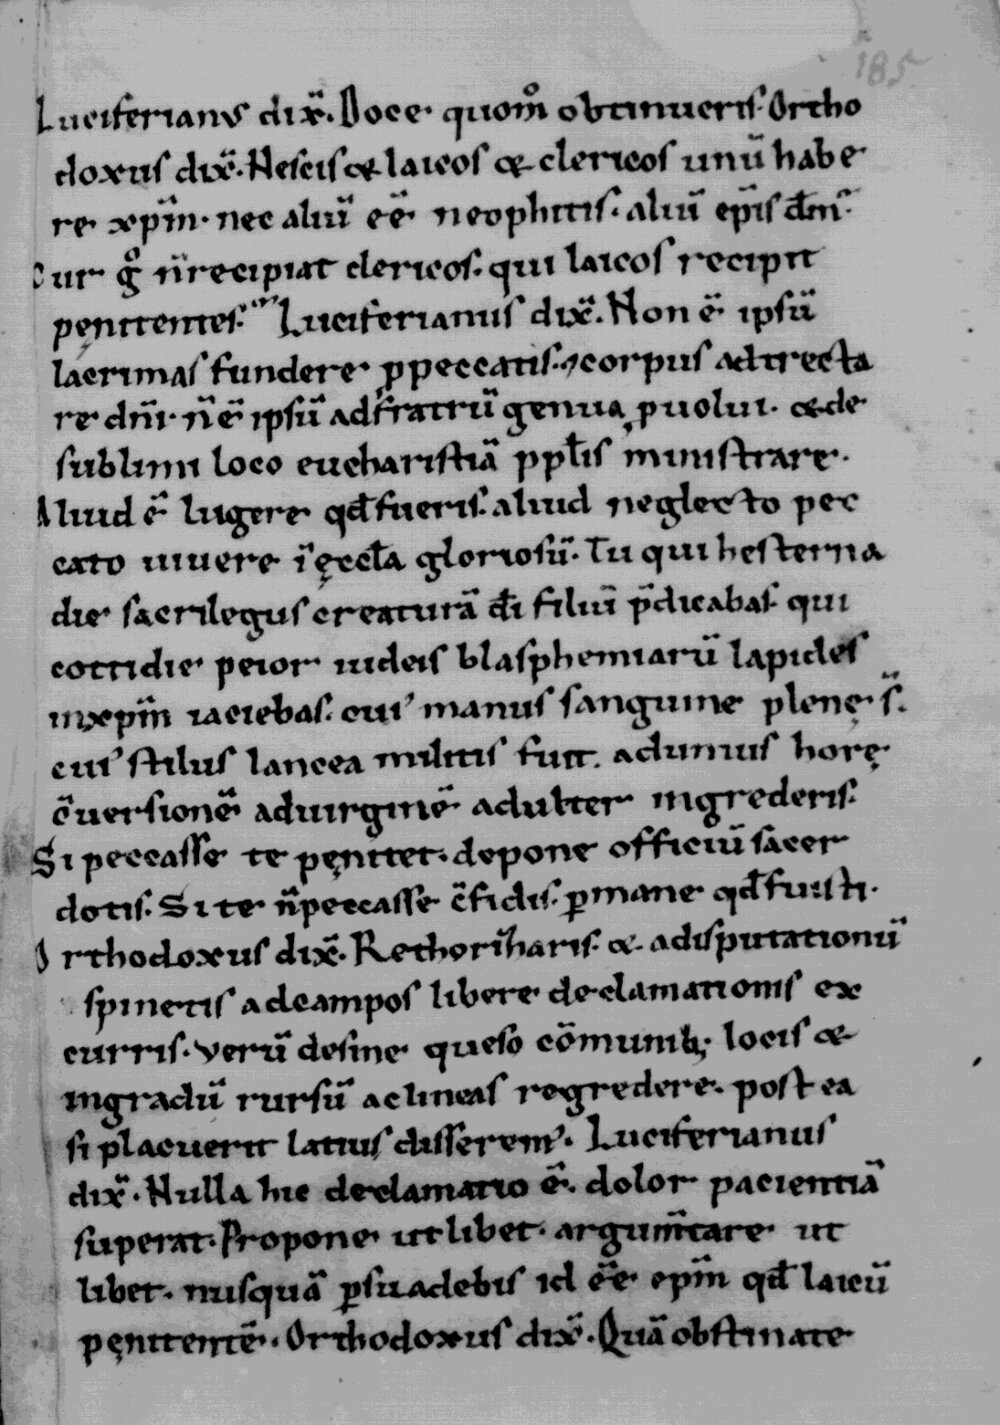 185
Luciferianus dix̄. Doce quom̊ obtinueris. Ortho
doxus dix̄. Nescis & laicos & clericos unū habe
re xp̄m. nec aliū eē neophitis. aliū ep̄is dm̄.
Cur g̊ n̄ recipiat clericos. qui laicos recipit
pęnitentes. Luciferianus dix̄. Non ē ipsū
lacrimas fundere ꝓ peccatis. ⁊ corpus adtrecta
re dn̄i. n̄ ē ipsū ad fr̄atrū genua ꝓuolui. & de
sublimi loco eucharistiā pp̄lis ministrare.
Aliud ē lugere qđ fueris. aliud neglecto pec
cato uiuere ī ęccl̄a gloriosū. Tu qui hesterna
die sacrilegus creaturā dī filiū p̄dicabas. qui
cottidie peior iudeis blasphemiarū lapides
in xp̄m iaciebas. cui᾽ manus sanguine plenę s̄.
cui᾽ stilus lancea militis fuit. ad unius horę
c̄uersionē ad uirginē adulter ingrederis.
Si peccasse te pęnitet. depone officiū sacer
dotis. Si te n̄ peccasse c̄fidis. ꝑmane qđ fuisti.
Orthodoxus dix̄. Rethoricharis. & a disputationū
spinetis ad campos libere declamationis ex
curris. Verū desine queso cōmunib; locis &
in gradū rursū ac lineas regredere. post ea
si placuerit latius disserem᾽. Luciferianus
dix̄. Nulla hic declamatio ē. dolor pacientiā
superat. Propone ut libet. argum̄tare ut
libet. nusquā ꝑsuadebis id eē ep̄m qđ laicū
pęnitentē. Orthodoxus dix̄. Quā obstinate